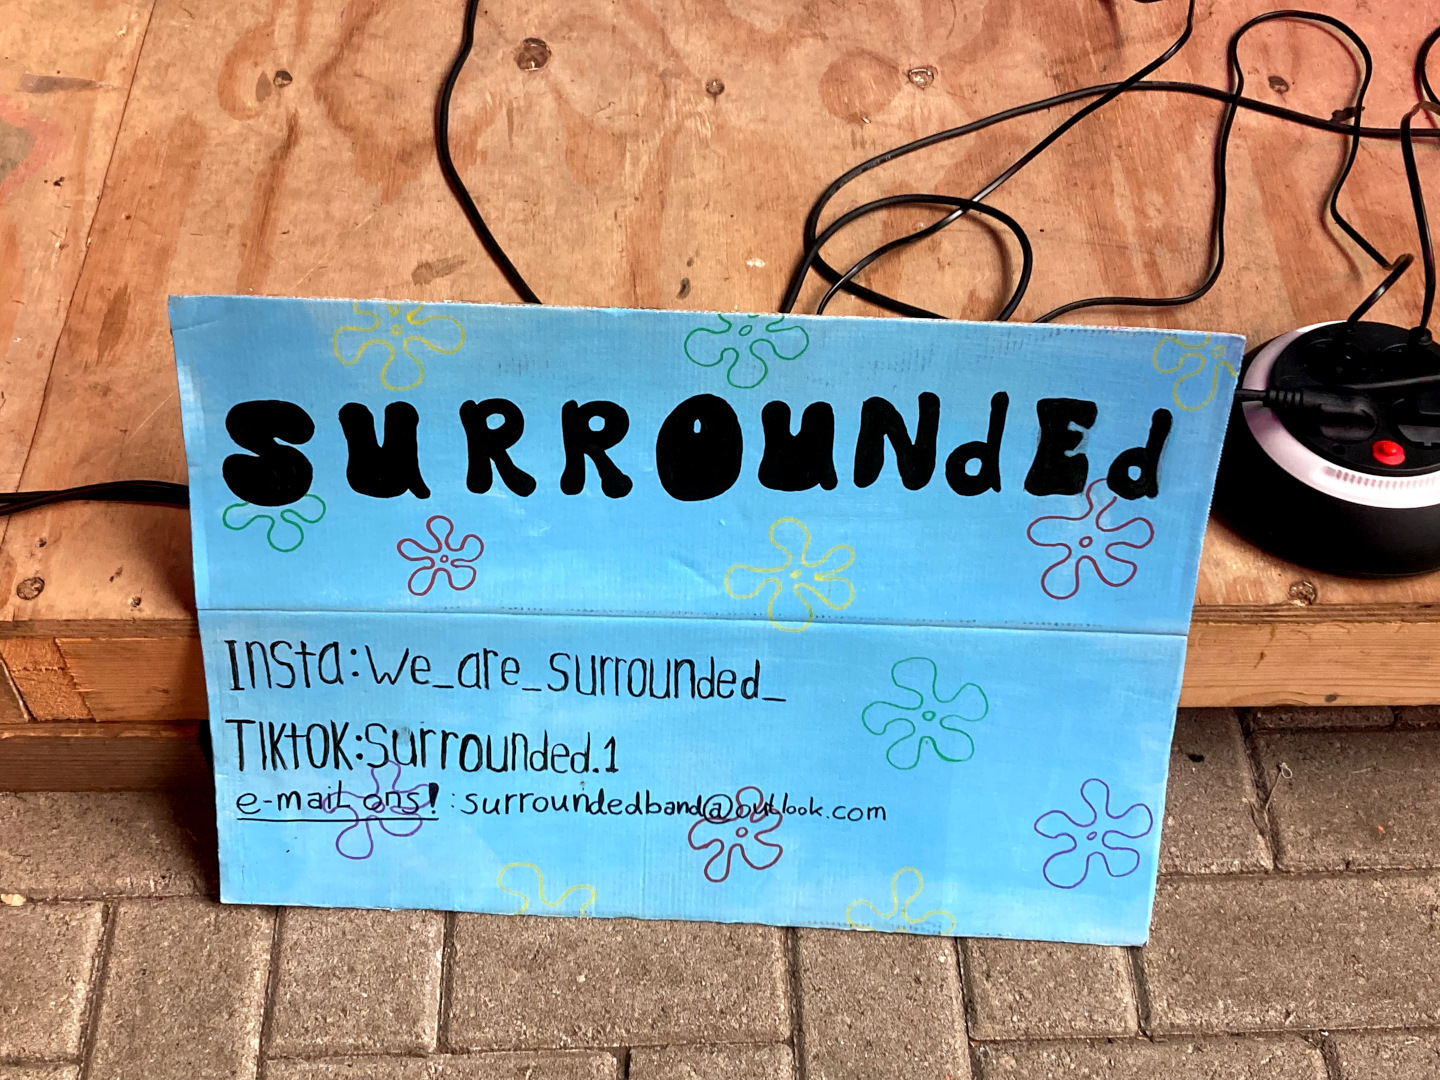 SURROUNdEd
Insta:We_are_surrounded_
TIktOK:Surrounded.1
e-mail ons! : surroundedband@outlook.com